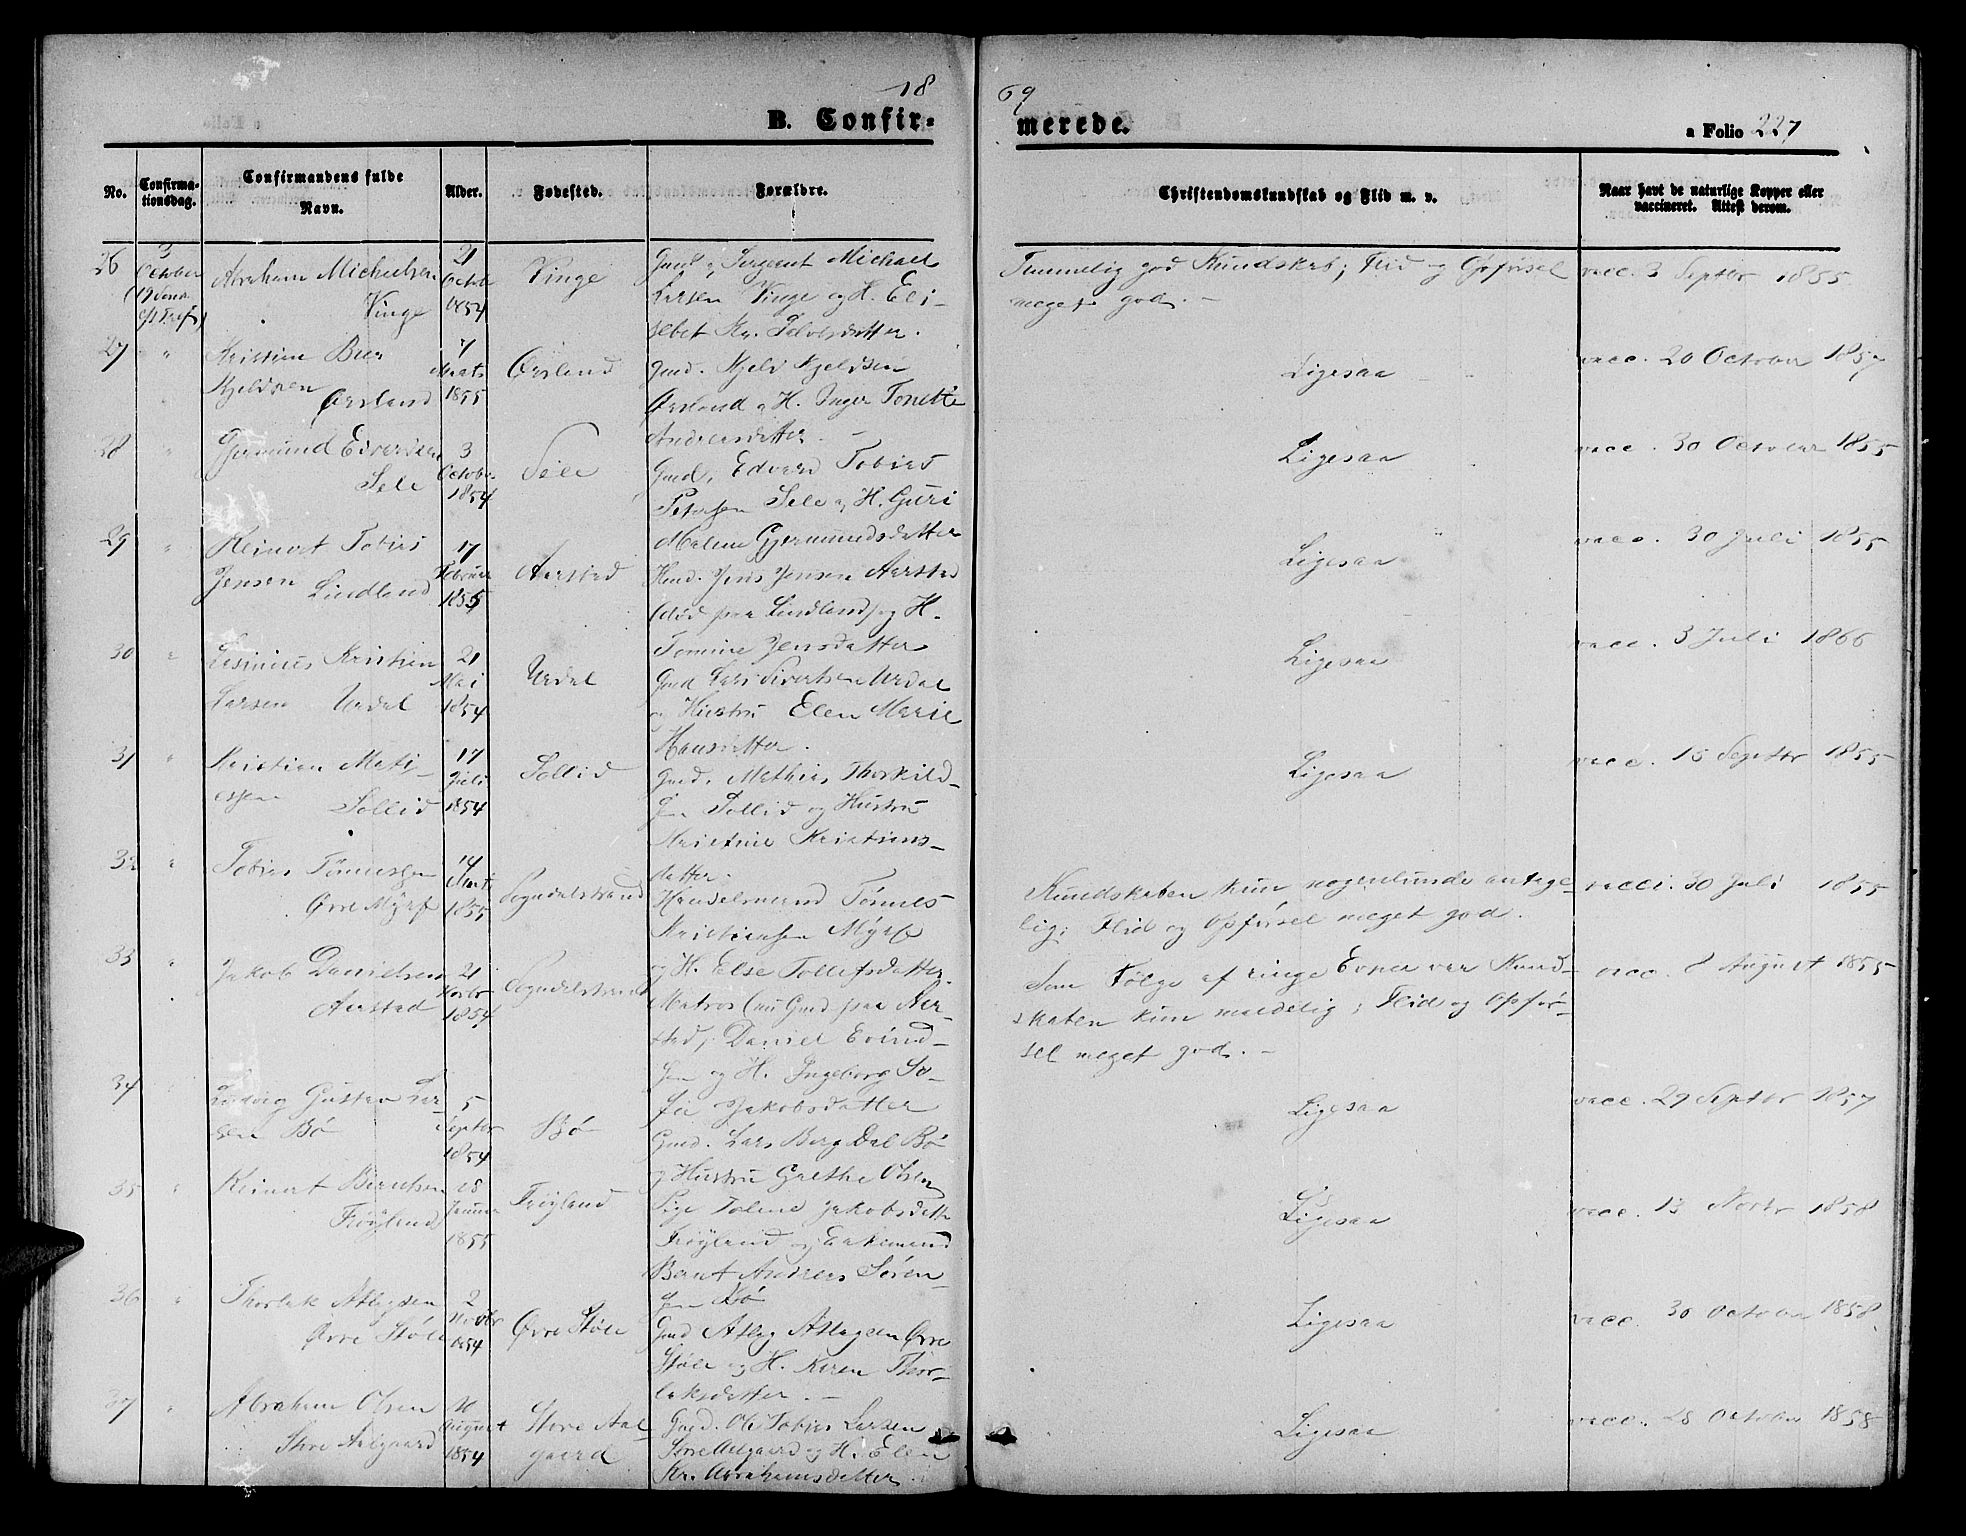 18
69
B. Confir-
merede.
a Folio 227
No.
Confirma-
tionsdag.
Confirmandens fulde
Navn.
Alder.
Fødested.
Forældre.
Christendomskundskab og Flid m. v.
Naar havt de naturlige Kopper eller
vaccineret. Attest derom.
26
3
October
(19 Sønd.
e/ Tref)
Abraham Michaelsen
Vinge
21
Octob
1854
Vinge
Gmd og Sergeant Michael
Larsen Vinge og H. Eli-
sebet Kr.
Temmelig god Kundskab; Flid og Opførsel
meget god. -
vacc. 3 Septbr 1855
27
"
Kristian Beer
Kjeldsen
Ørsland
7
Marts
1855
Ørsland
Gmd. Kjeld Kjeldsen
Ørsland og H. Inger Tonette
Andreasdatter -
Ligesaa
vacc. 20 October 1857
28
"
Gjermund Edvardsen
Sele
3
October
1854
Sele
Gmd. Edvard Tobias
Petersen Sele og H. Guri
Malene Gjermundsdatter
Ligesaa
vacc. 30 October 1855
29
"
Reinert Tobias
Jensen Lindland
17
Februar
1855
Aarstad
Hmd. Jens Jensen Aarstad
(død paa Lindland) og H.
Tomine Jensdatter
Ligesaa
vacc. 30 Juli 1855
30
"
Kristian
Larsen Urdal
21
Mai
1854
Urdal
Gmd Lars Sivertsen Urdal
og Hustru Elen Marie
Hansdatter.
Ligesaa
vacc. 3 Juli 1866
31
"
Kristian Mathi-
essen
Sollid
17
Juli
1854
Sollid
Gmd. Mathias Thorkild-
sen Sollid og Hustru
Kristine Kristians-
datter.
Ligesaa
vacc. 15 Septbr 1855
32
"
Tobias Tønnessen
Øvre Myre
14
Marts
1855
Sogndalstrand
Handelsmand Tønnes
Kristiansen Myre
og H. Else Tollefsdatter
Kundskaben kun nogenlunde antage-
lig; Flid og Opførsel meget god.
vacc. 30 Juli 1855
33
"
Jakob Danielsen
Aarstad
21
Novbr
1854
Sogndalstrand
Matros (nu Gmd paa Aar-
stad) Daniel Evind-
sen og H. Ingeborg So-
fie Jakobsdatter
Som Følge af ringe Evner var Kund-
skaben kun maadelig; Flid og Opfør-
sel meget god. -
vacc. 8 August 1855
34
Ludvig Gustav Lar-
sen Bø
5
Septbr
1854
Bø
Gmd. Lars Berg Dal Bø
og Hustru Grethe Olsen
Ligesaa
vacc. 29 Septbr 1857
35
"
Reinert Berntsen
Frøyland
18
Januar
1855
Frøyland
Pige Tolene Jakobsdatter
Frøyland og Enkemand
Bernt Andreas Søren-
sen Bø
Ligesaa
vacc. 13 Novbr 1858
36
"
Thorlak Aslagsen
Øvre Støle
2
Novbr
1854
Øvre Støle
Gmd Aslag Aslagsen Øvre
Støle og H. Karen Thor-
laksdatter. -
Ligesaa
vacc. 30 October 1858.
37
"
Abraham Olsen
Store Aalgaard
August
1854
Store Aal
gaard
Gmd. Ole Tobias Larsen
Store Aalgaard og H. Elen
Kr. Abrahamsdatter
Ligesaa
vacc. 28 October 1858